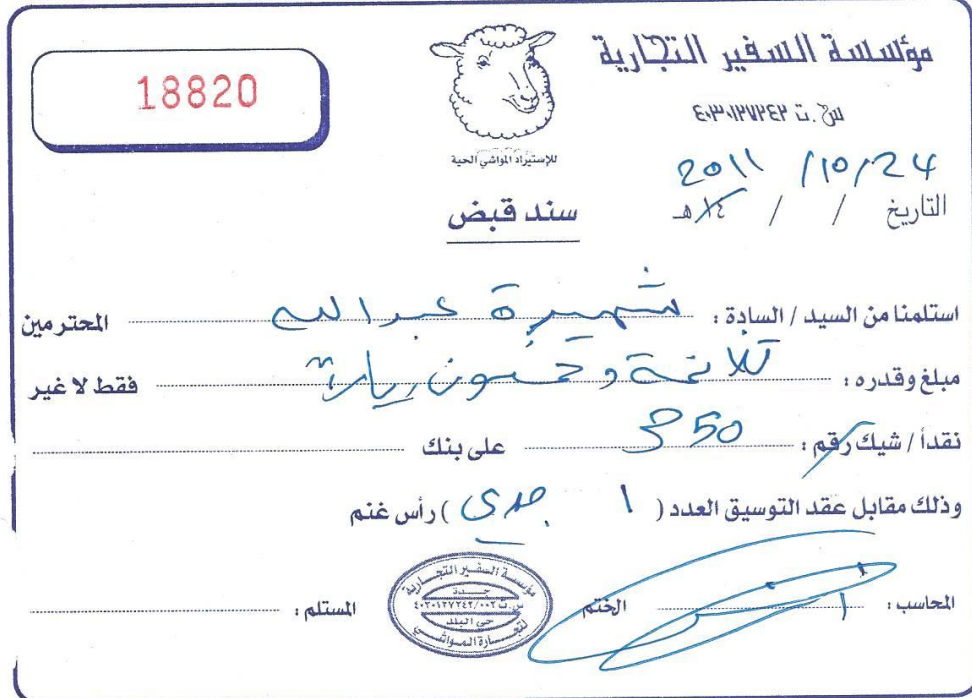 مؤسسة السفير التجارية
18820
س.ت ٤٠٣٠١٢٧٢٤٢
للإستيراد المواشي الحية
2011 /10/24
التاريخ / / ١٤هـ
سند قبض
استلمنا من السيد / السادة : شهيرة عبد الله المحترمين
مبلغ وقدره : ثلاثمئة وخمسون ريال فقط لا غير
نقداً / شيك رقم : 350 على بنك
وذلك مقابل عقد التوسيق العدد ( ١ جدي ) رأس غنم
المحاسب : الختم المستلم :
مؤسسة السفير التجارية
جدة
س.ت ٤٠٣٠١٢٧٢٤٢/٠٠٢
حي البلد
لتجارة المواشي